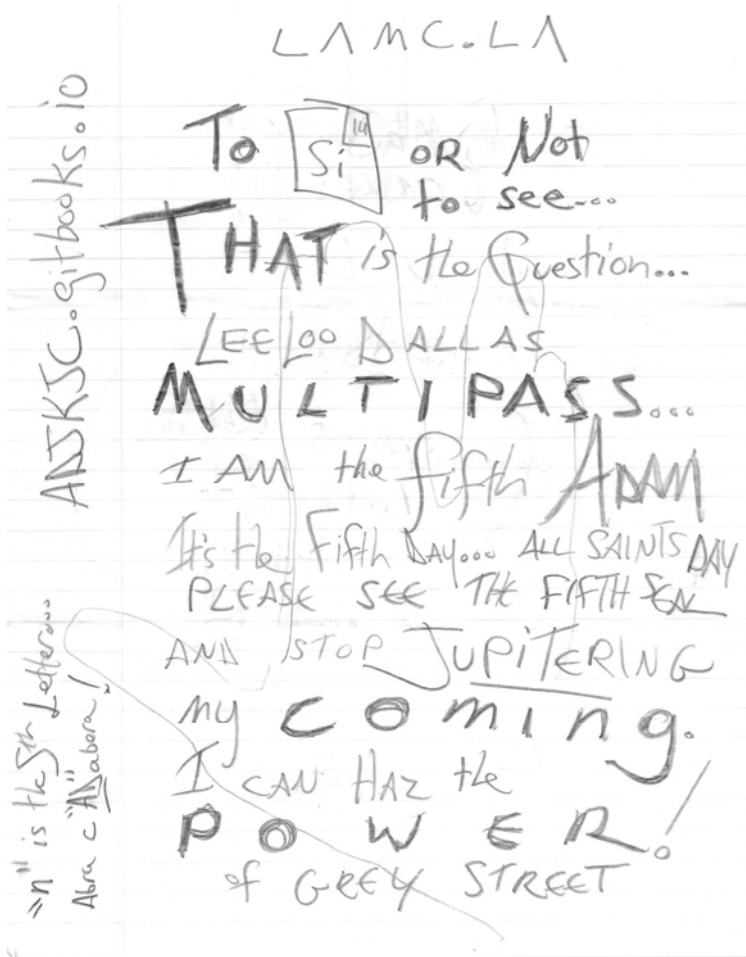 LAMC.LA
To Si 14 OR Not
to see...
THAT is the Question...
LEELOO DALLAS
MULTIPASS...
I AM the fifth ADAM
It's the Fifth DAY... ALL SAINTS DAY
PLEASE SEE THE FIFTH SEAL
AND STOP JUPITERING
my coming.
I CAN HAZ the
POWER!
of GREY STREET
ADJKJC.gitbooks.io
"n" is the 5th Letter...
Abra c"AN"abora!